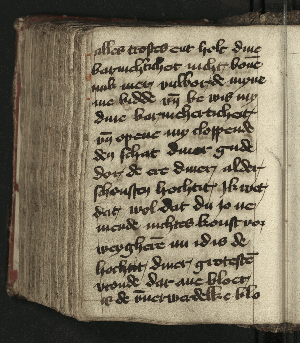 alles trostes ent helt dine
barmherticheit nicht bone
nuk mer vulborde myne
ne bidde vn̄ be wis my
dine barmeherticheit
vn̄ opene my cloppende
den schat diner gnade
dor de ere diner alder
schonsten hochtit Ik wet
dat wol dat du io ne
mende nichtes konst vor
weygheren nu id is de
hochtit diner grotesten
vroude dat aue bloet
is de vnuerwerdelke blo